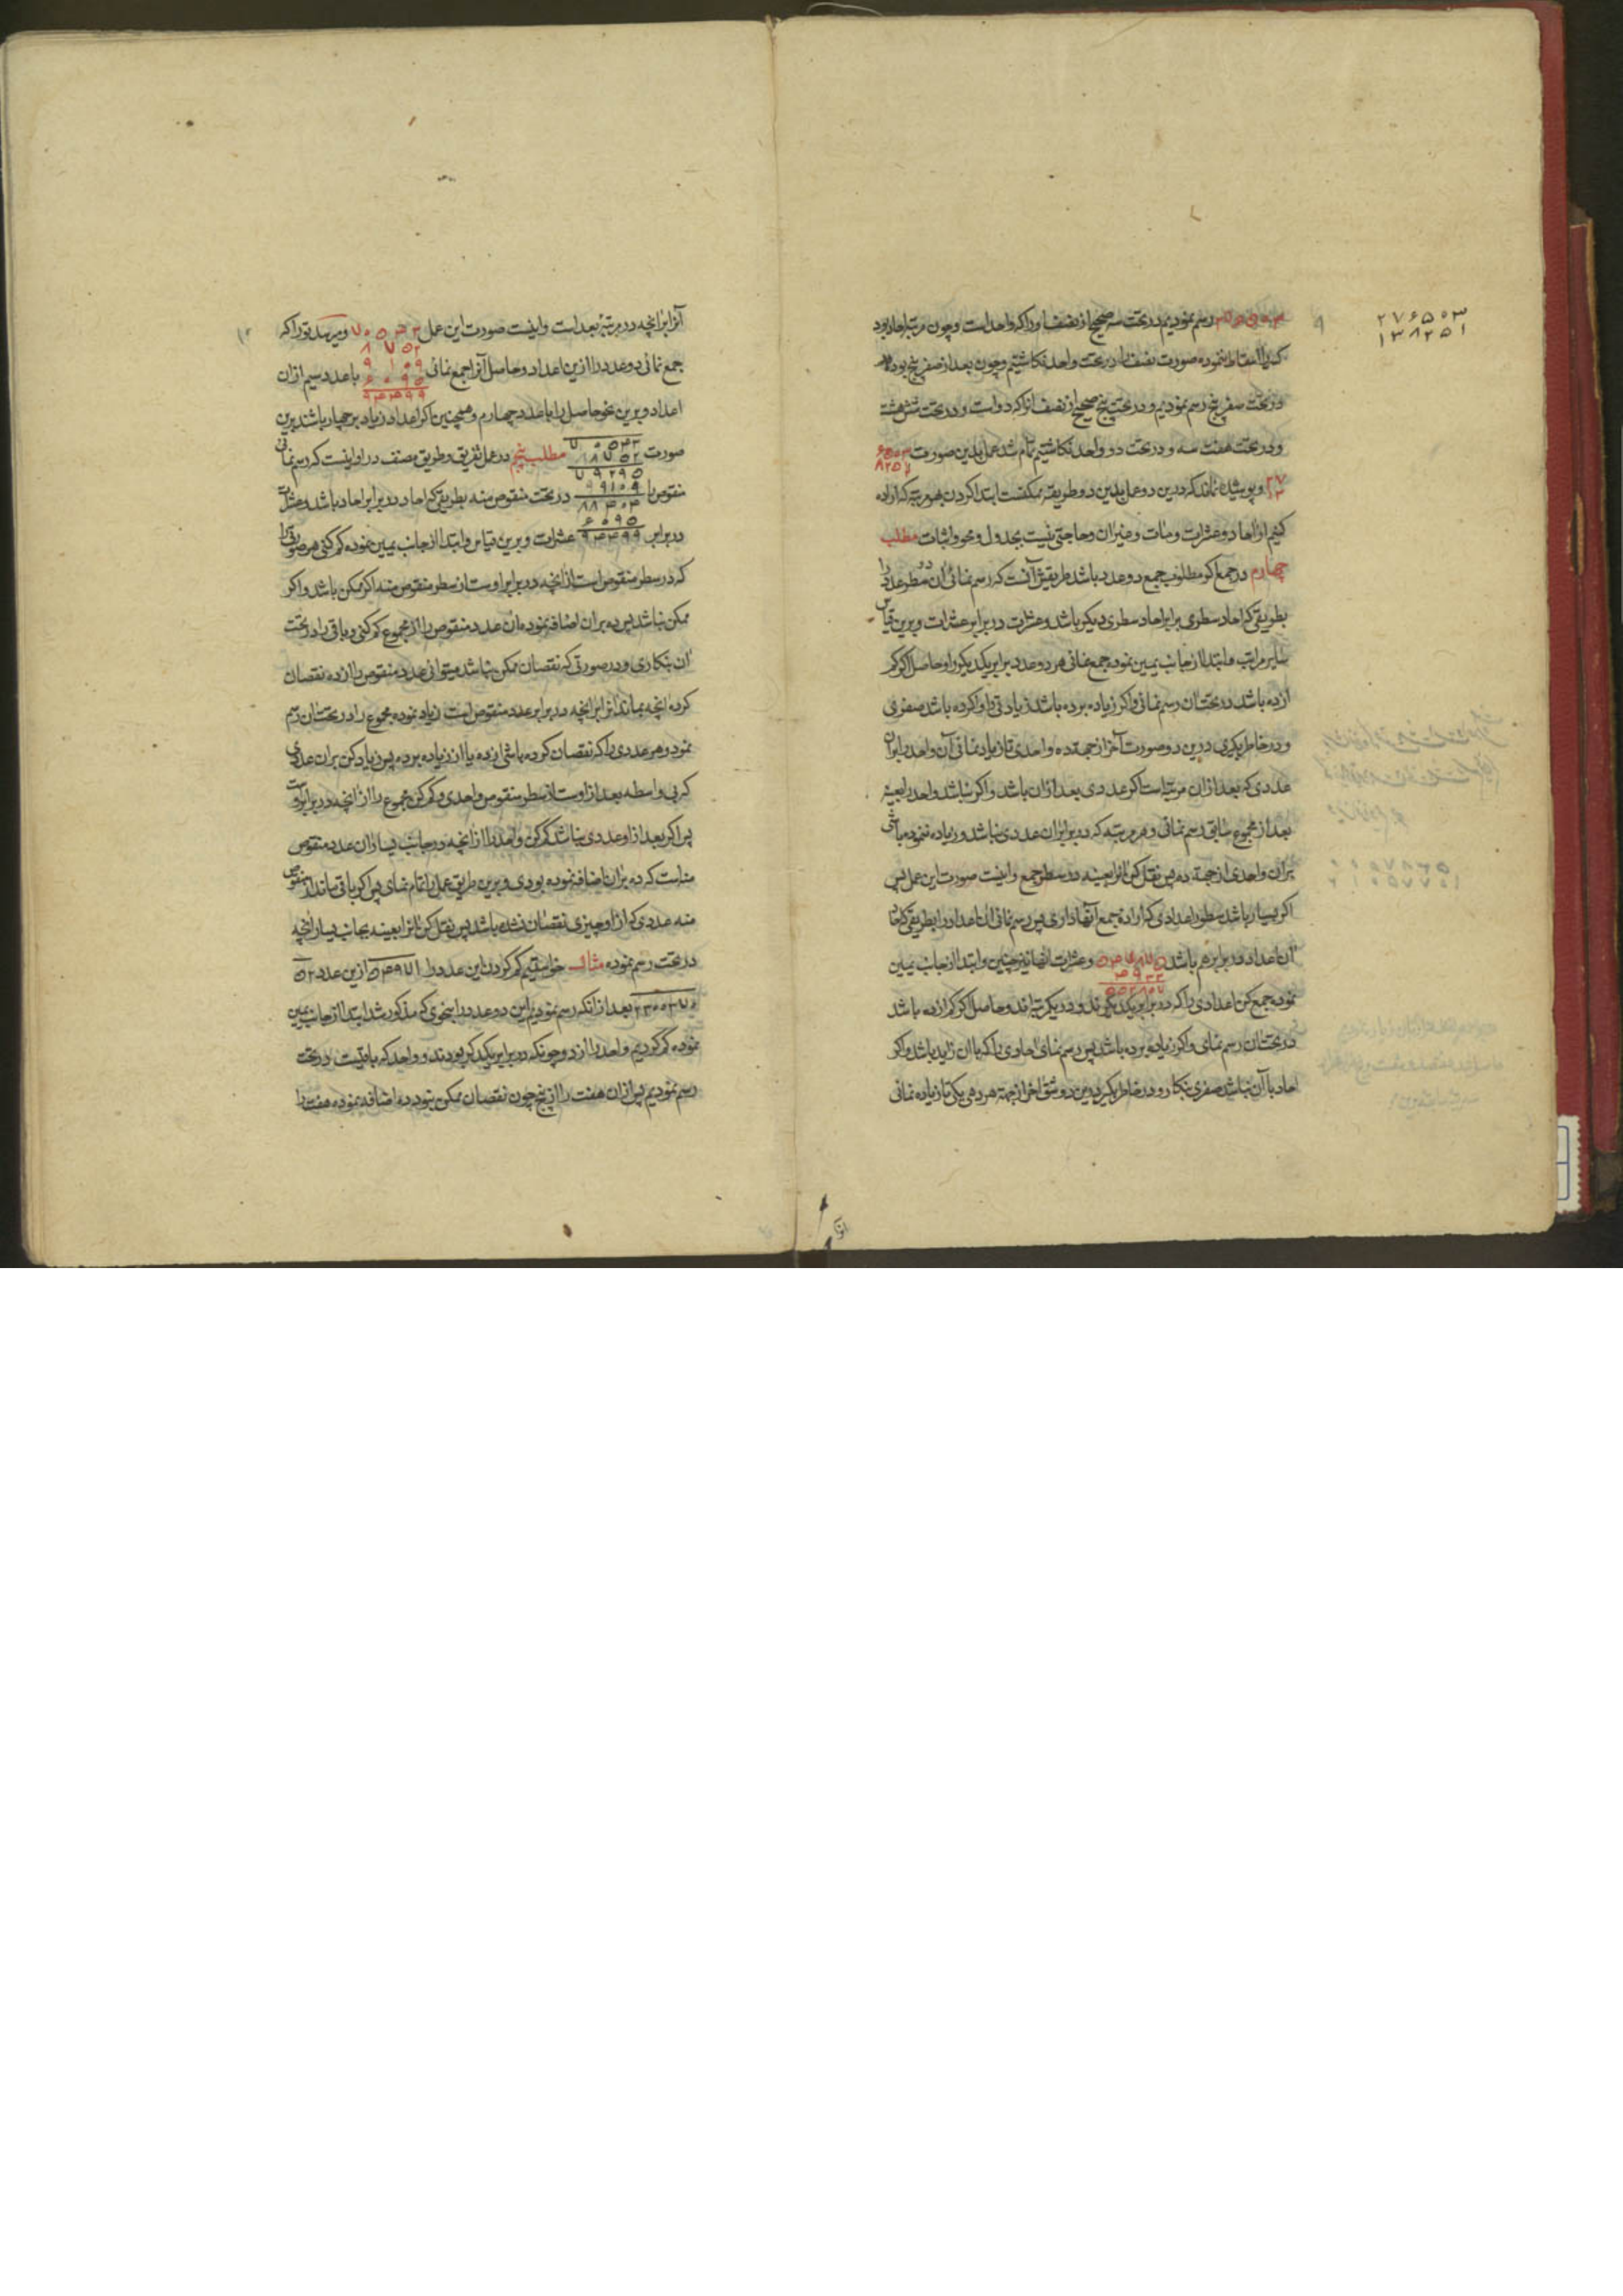 رسم نمودیم در تحت سه صحیح از نصف او را که واحد است و چون مرتبه احاد بود
۲۷۶۵۰۳
۱۳۸۲۵۱
کسر را اسقاط نموده صورت نصف را در تحت واحد نکاشتیم و چون بعد از صفر پنج بود
در تحت صفر پنج رسم نمودیم و در تحت پنج صحیح از نصف او را که دو است و در تحت شش هشت
و در تحت هفت سه و در تحت دو واحد نکاشتیم تمام شد عمل بدین صورت
و پوشیده نماند که درین دو عمل بدین دو طریقه ممکنست ابتدا کردن بهر مرتبه که اراده
کنیم از احاد و عشرات و مئات و میزان و حاجتی نیست بجدول و محو و اثبات مطلب
چهارم در جمع اگر مطلوب جمع دو عدد باشد طریقش آنست که رسم نمائی آن دو سطر عدد را
بطریقی که احاد سطری برابر احاد سطری دیگر باشد و عشرات در برابر عشرات و برین قیاس
سایر مراتب و ابتدا از جانب یمین نموده جمع نمائی هر دو عدد برابر یکدیگر را و حاصل اگر کمتر
از ده باشد در تحت آن رسم نمائی و اگر زیاده بر ده باشد زیادتی را و اگر ده باشد صفری
و در خاطر بگیری درین دو صورت آخر از جهة ده واحدی تا زیاد نمائی آن واحد را بر آن
عددی که بعد از آن مرتبه است اگر عددی بعد از آن باشد و اگر نباشد واحد را بعینه
بعد از مجموع سابق رسم نمائی و هر مرتبه که در برابر آن عددی نباشد و زیاده ننموده باشی
بر آن واحدی از جهة ده پس نقل کن آنرا بعینه در سطر جمع و اینست صورت این عمل پس
اگر بسیار باشد سطور اعدادی که اراده جمع آنها داری پس رسم نمائی آن اعداد را بطریقی که احاد
آن اعداد در برابر هم باشد و عشرات آنها نیز چنین و ابتدا از جانب یمین
نموده جمع کن اعدادی را که در برابر یکدیگرند و در یک مرتبه اند و حاصل اگر کم از ده باشد
در تحت آن رسم نمای و اگر زیاده بر ده باشد پس رسم نمای احادی را که با آن زاید باشد و اگر
احاد با آن نباشد صفری بنکار و در خاطر بگیر درین دو شق اخر از جهة هر دهی یکی تا زیاده نمائی
آنرا بر انچه در مرتبه بعد است و اینست صورت این عمل و میرسد تو را که
جمع نمائی دو عدد را از این اعداد و حاصل آنرا جمع نمائی با عدد سیم از آن
اعداد و برین نحو حاصل را با عدد چهارم و همچنین اگر اعداد زیاد بر چهار باشد برین
صورت مطلب پنجم در عمل تفریق و طریق مصنف در او اینست که رسم نمائی
منقوص را در تحت منقوص منه بطریقی که احاد در برابر احاد باشد و عشرات
در برابر عشرات و برین قیاس و ابتدا از جانب یمین نموده کم کنی هر صورتی را
که در سطر منقوص است از انچه در برابر اوست از سطر منقوص منه اگر ممکن باشد و اگر
ممکن نباشد پس ده بر آن اضافه نموده آن عدد منقوص را از مجموع کم کنی و باقی را در تحت
آن بنکاری و در صورتی که نقصان ممکن نباشد میتوانی عدد منقوص را از ده نقصان
کرده انچه بماند آنرا بر انچه در برابر عدد منقوص است زیاد نموده مجموع را در تحت آن رسم
نمود و هر عددی را که نقصان کرده باشی از ده یا از زیاده بر ده پس زیاد کن بر آن عددی
که بی واسطه بعد از اوست از سطر منقوص واحدی و کم کن مجموع را از انچه در برابر اوست
پس اگر بعد از او عددی نباشد کم کن واحد را از انچه در جانب یسار آن عدد منقوص
منه است که ده بر آن اضافه نموده بودی و برین طریق عمل را تمام نمای پس اگر باقی بماند از منقوص
منه عددی که از او چیزی نقصان نشده باشد پس نقل کن آنرا بعینه بجانب یسار انچه
در تحت رسم نموده مثال خواستیم کم کردن این عدد را از این عدد
بعد از انکه رسم نمودیم این دو عدد را بنحوی که مذکور شد ابتدا از جانب یمین
نموده کم کردیم واحد را از دو چونکه در برابر یکدیگر بودند و واحد که باقیست در تحت
رسم نمودیم پس از آن هفت را از پنج چون نقصان ممکن نبود ده اضافه نموده هفت را